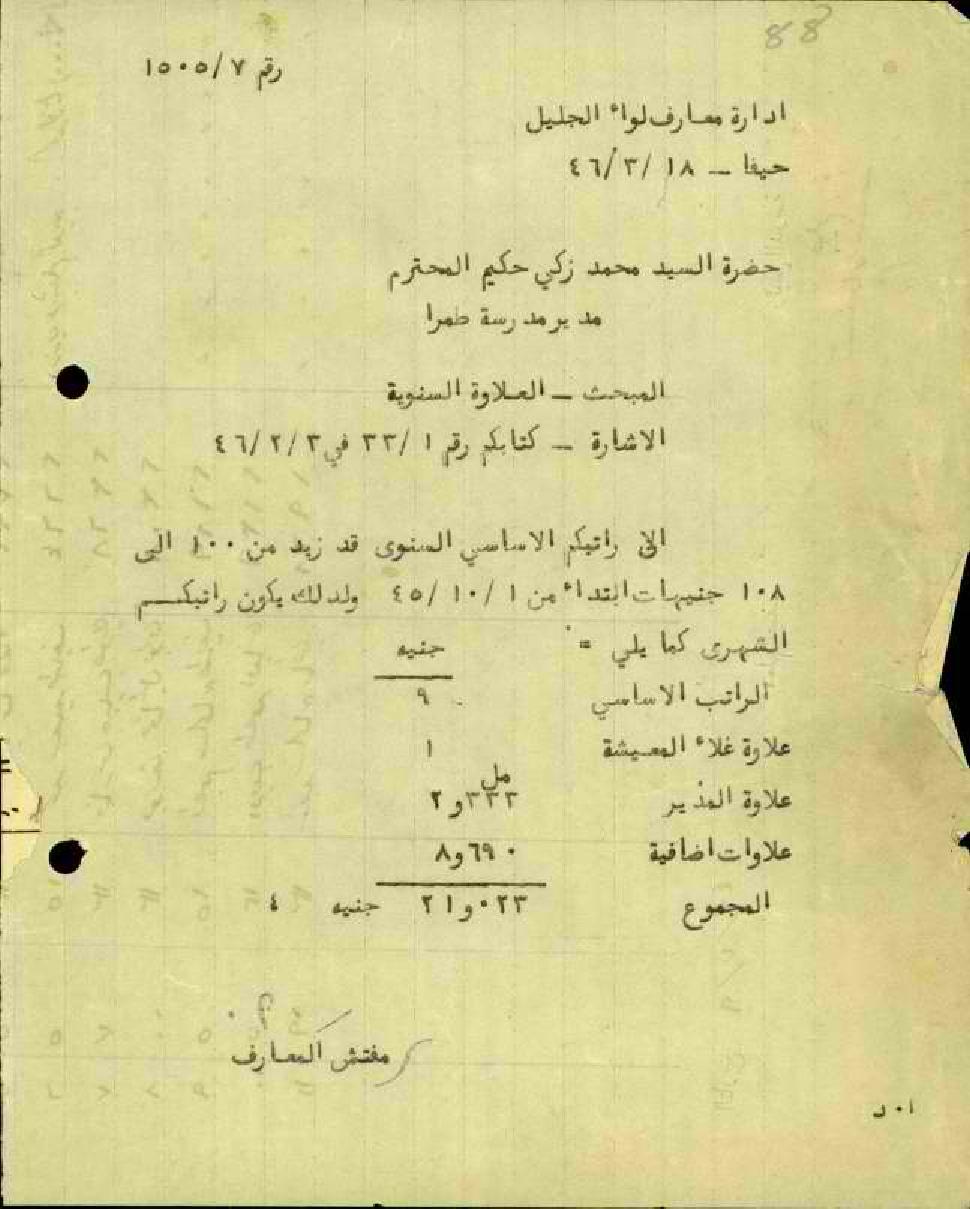 88
رقم ٧/ ١٥٠٥
ادارة معارف لواء الجليل
حيفا – ١٨ /٣/ ٤٦
حضرة السيد محمد زكي حكيم المحترم
مدير مدرسة طمرا
المبحث – العلاوة السنوية
الاشارة – كتابكم رقم ١ /٣٣ في ٢/٢/ ٤٦
الى راتبكم الاساسي السنوى قد زيد من ١٠٠ الى
١٠٨ جنيهات ابتداء من ١ /١٠ /٤٥ ولذلك يكون راتبكم
الشهرى كما يلي = جنيه
الراتب الاساسي ٩
علاوة غلاء المعيشة ١
مل
علاوة المدير ٣٣٣و٢
علاوات اضافية ٦٩٠و٨
المجموع ٠٢٣و٢١ جنيه ٤
مفتش المعارف
ا٠د